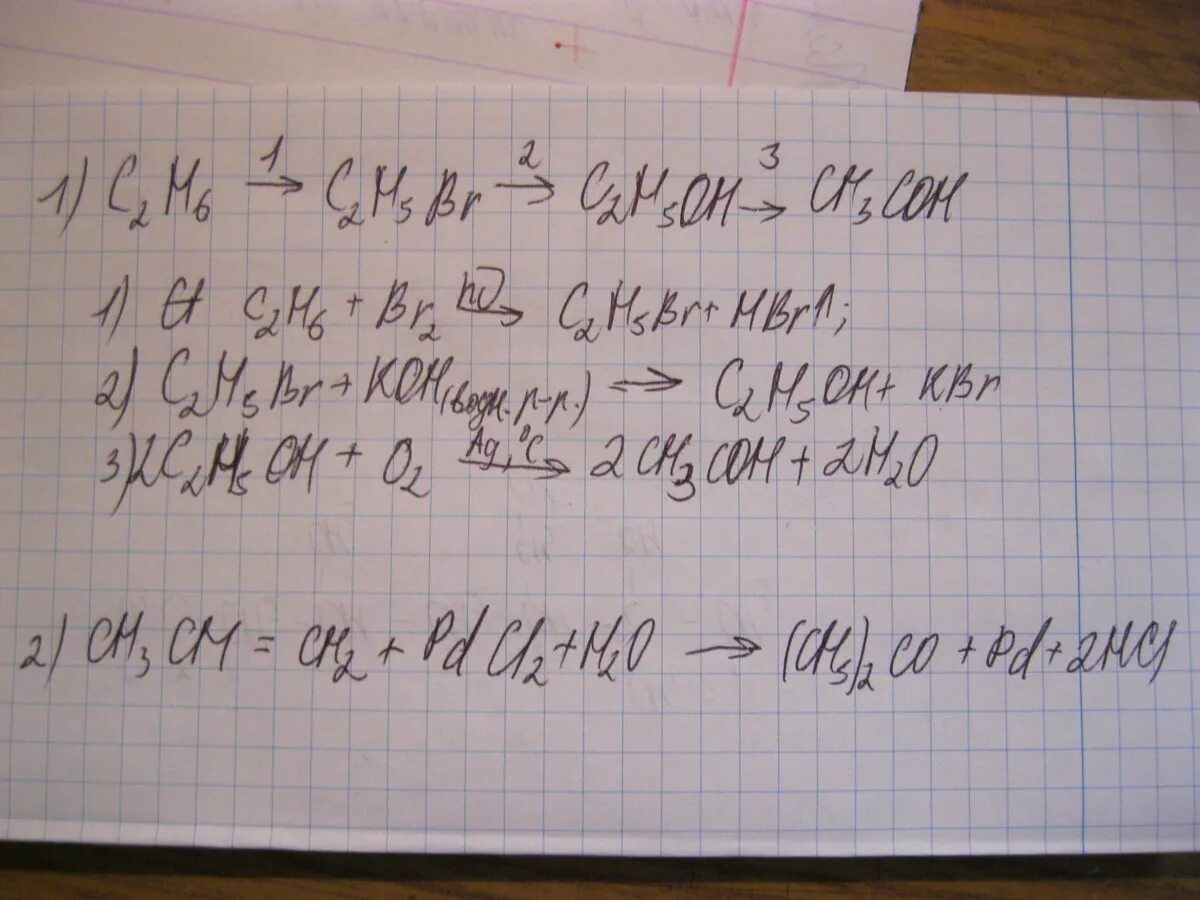 1) C₂H₆ →¹ C₂H₅Br →² C₂H₅OH →³ CH₃COH
1) C₂H₆ + Br₂ →(hν) C₂H₅Br + HBr↑;
2) C₂H₅Br + KOH(водн. р-р.) ⇒ C₂H₅OH + KBr
3) 2C₂H₅OH + O₂ →(Ag, °C) 2CH₃COH + 2H₂O
2) CH₃CH = CH₂ + PdCl₂ + H₂O → (CH₃)₂CO + Pd + 2HCl